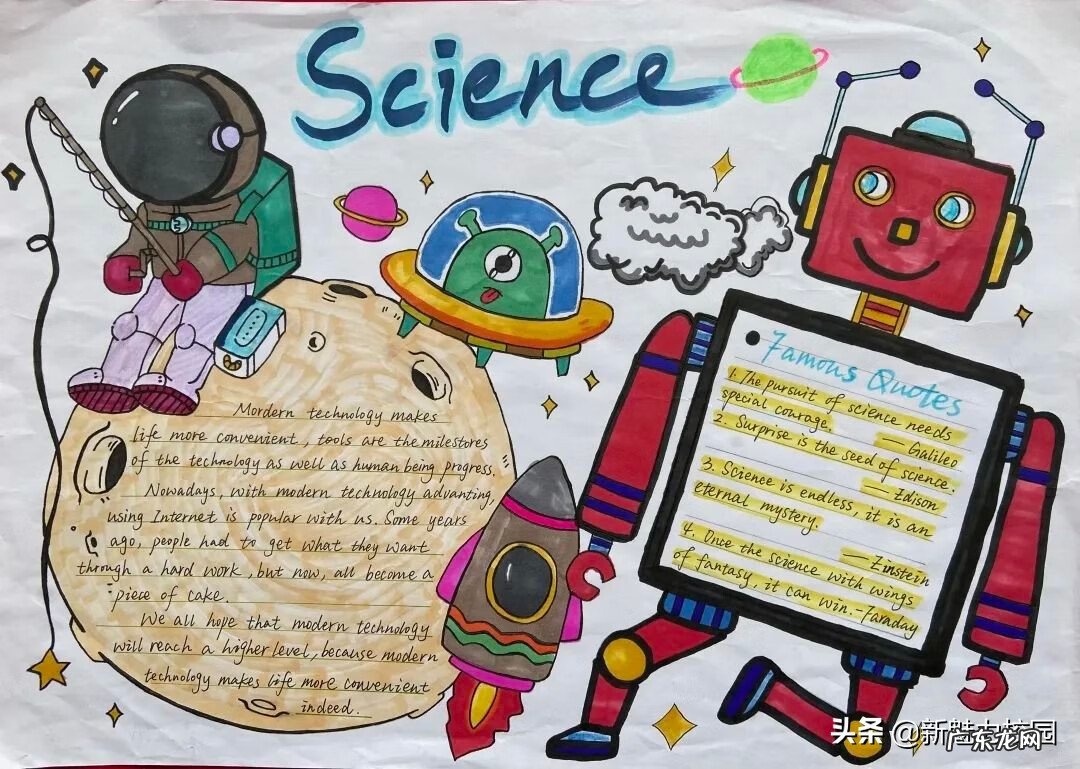 Science
Mordern technology makes
life more convenient, tools are the milestores
of the technology as well as human being progress.
Nowadays, with modern technology advanting,
using Internet is popular with us. Some years
ago, people had to get what they want
through a hard work, but now, all become a
piece of cake.
We all hope that modern technology
will reach a higher level, because modern
technology makes life more convenient
indeed.
Famous Quotes
1. The pursuit of science needs
special courage.
— Galileo
2. Surprise is the seed of science.
— Edison
3. Science is endless, it is an
eternal mystery.
— Einstein
4. Once the science with wings
of fantasy, it can win. - Faraday
头条 @新魅力校园
广东龙网